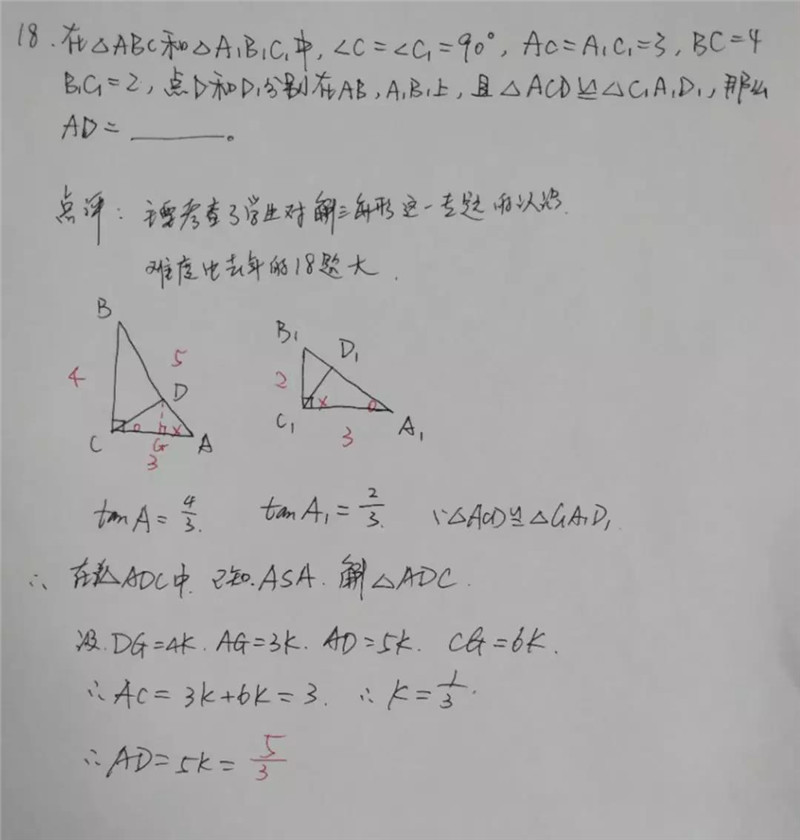 18. 在△ABC和△A₁B₁C₁中, ∠C=∠C₁=90°, AC=A₁C₁=3, BC=4
B₁C₁=2, 点D和D₁分别在AB, A₁B₁上, 且△ACD≌△C₁A₁D₁, 那么
AD=______。
点评: 主要考查了学生对解三角形这一专题的认识.
难度比去年的18题大.
B
5
4
D
C
o
G
x
A
3
B₁
D₁
2
C₁
x
o
A₁
3
tanA=4/3. tanA₁=2/3. ∵△ACD≌△C₁A₁D₁
∴ 在△ADC中. 已知.ASA. 解△ADC.
设.DG=4k. AG=3k. AD=5k. CG=6k.
∴AC=3k+6k=3. ∴k=1/3.
∴AD=5k=5/3